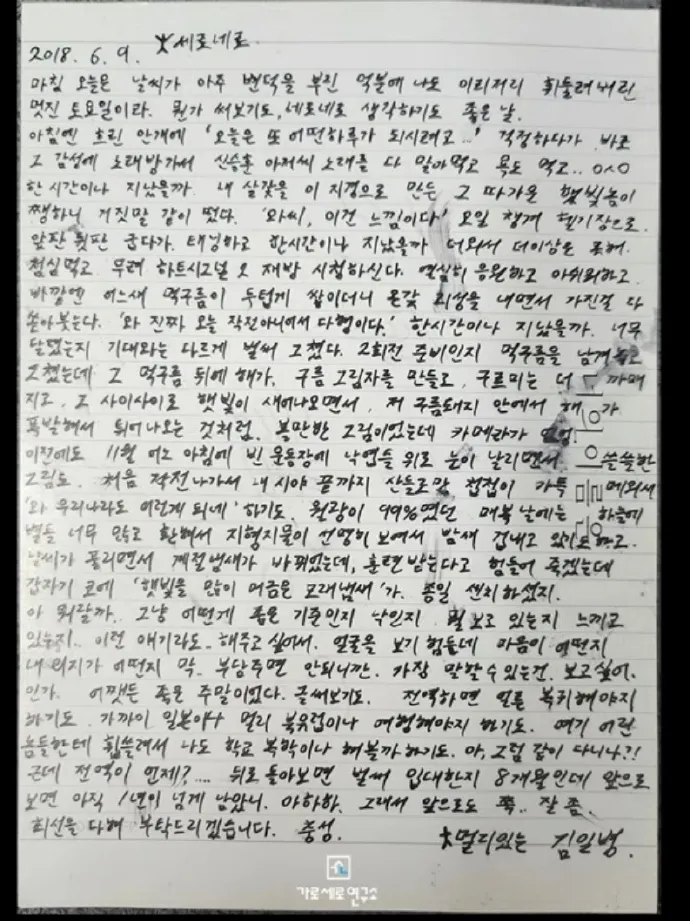 2018. 6. 9. 세로네로
마침 오늘은 날씨가 아주 변덕을 부린 덕분에 나도 이리저리 휘둘려버린
멋진 토요일이라. 뭔가 써보기도, 네로네로 생각하기도 좋은 날.
아침엔 흐린 안개에 '오늘은 또 어떤하루가 되시려고...' 걱정하다가 바로
그 감성에 노래방가서 신승훈 아저씨 노래를 다 말아먹고 욕도 먹고.. 0^0
한시간이나 지났을까. 내 살갗을 이 지경으로 만든 그 따가운 햇빛놈이
쨍하니 거짓말 같이 떴다. '와씨, 이건 느낌이다' 오일 챙겨 헬기장으로.
앞판 뒷판 굽다가. 태닝하고 한시간이나 지났을까 더워서 더이상은 못해.
점심먹고 무려 하트시그널 2 재방 시청하신다. 열심히 응원하고 아쉬워하고.
바깥엔 어느새 먹구름이 두텁게 쌓이더니 온갖 괴성을 내면서 가진걸 다
쏟아붓는다. '와 진짜 오늘 작전아니어서 다행이다.' 한시간이나 지났을까. 너무
달랬는지 기대와는 다르게 벌써 그쳤다. 2회전 준비인지 먹구름을 남겨놓고
그쳤는데 그 먹구름 뒤에 해가, 구름 그림자를 만들고, 구르미는 더 까매
지고, 그 사이사이로 햇빛이 새어나오면서, 저 구름돼지 안에서 해가
폭발해서 튀어나오는 것처럼. 볼만한 그림이었는데 카메라가 없엉
이전에도 11월 어느 아침에 빈 운동장에 낙엽들 위로 눈이 날리면서 쓸쓸한
그림도. 처음 작전나가서 내 시야 끝까지 산들로만 첩첩이 가득 메워져
'와 우리나라도 이렇게 되네' 하기도. 월광이 99%였던 매복 날에는 하늘에
별들 너무 많고 환해서 지형지물이 선명히 보여서 밤새 겁내고 있기도하고.
날씨가 풀리면서 계절냄새가 바뀌었는데, 훈련받는다고 힘들어 죽겠는데
갑자기 코에 '햇빛을 많이 머금은 모래냄새'가. 종일 센치하셨지.
아 뭐랄까.. 그냥 어떻게 좋은 기준인지 낙인지 뭘 보고 있는지 느끼고
있는지.. 이런 얘기라도.. 해주고싶어서. 얼굴을 보기 힘든데 마음이 어떤지
내 의지가 어떤지 막.. 부담주면 안되니깐. 가장 말할수있는건. 보고싶어.
인가. 어쨋든 좋은 주말이었다. 글써보기도. 전역하면 얼른 복귀해야지
하기도. 가까이 일본이나 멀리 북유럽이나 여행해야지 하기도. 여기 어린
놈들한테 휩쓸려서 나도 학교 복학이나 해볼까하기도. 아, 그럼 같이 다니나?!
근데 전역이 언제?.... 뒤로 돌아보면 벌써 입대한지 8개월인데 앞으로
보면 아직 1년이 넘게 남았니. 아하하. 그래서 앞으로도 쭉.. 잘 좀.
최선을 다해 부탁드리겠습니다. 충성. 멀리있는 김일병.
너의 이름은
가로세로연구소